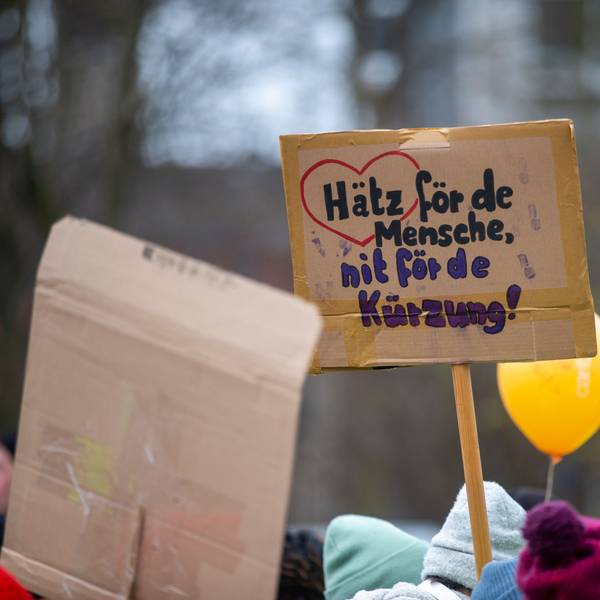 Hätz för de
Mensche,
nit för de
Kürzung!